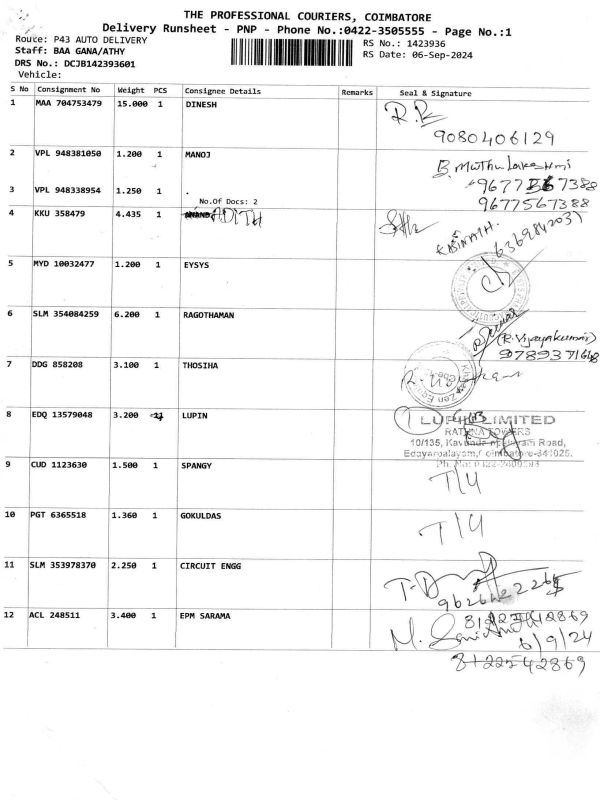 THE PROFESSIONAL COURIERS, COIMBATORE
Delivery Runsheet - PNP - Phone No.:0422-3505555 - Page No.:1
Route: P43 AUTO DELIVERY
RS No.: 1423936
Staff: BAA GANA/ATHY
RS Date: 06-Sep-2024
DRS No.: DCJB142393601
Vehicle:
S No Consignment No Weight PCS Consignee Details Remarks Seal & Signature
1 MAA 704753479 15.000 1 DINESH
9080406129
2 VPL 948381050 1.200 1 MANOJ
3 VPL 948338954 1.250 1 .
9677567388
No.Of Docs: 2
4 KKU 358479 4.435 1 ADITH
KASINATH.
5 MYD 10032477 1.200 1 EYSYS
6 SLM 354084259 6.200 1 RAGOTHAMAN
(R. Vijayakumar)
7 DDG 858208 3.100 1 THOSIHA
8 EDQ 13579048 3.200 LUPIN
LUPIN LIMITED
RATHNA TOWERS
10/135, Road,
9 CUD 1123630 1.500 1 SPANGY
T/4
10 PGT 6365518 1.360 1 GOKULDAS
T/4
11 SLM 353978370 2.250 1 CIRCUIT ENGG
12 ACL 248511 3.400 1 EPM SARAMA
6/9/24
8122542869